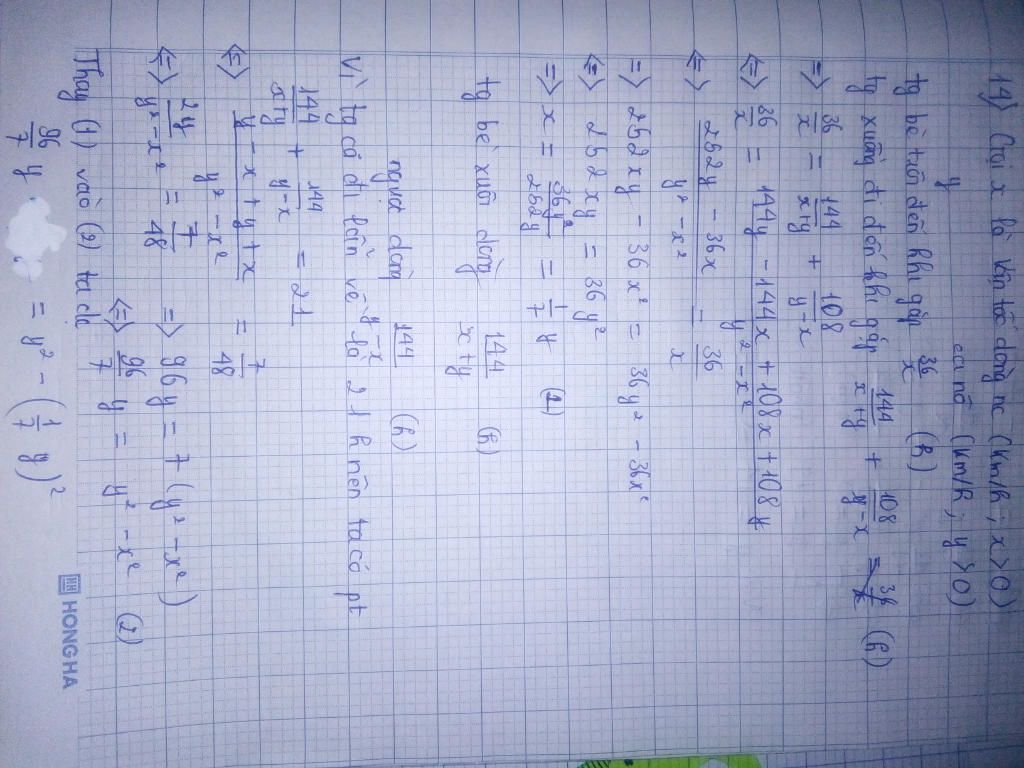 14) Gọi x là vận tốc dòng nc (km/h; x>0)
y ca nô (km/h; y>0)
tg bè trôi đến khi gặp 36/x (h)
tg xuồng đi đến khi gặp 144/x+y + 108/y-x = 36/x (h)
=> 36/x = 144/x+y + 108/y-x
<=> 36/x = 144y - 144x + 108x + 108y / y² - x²
<=> 252y - 36x / y² - x² = 36/x
=> 252xy - 36x² = 36y² - 36x²
<=> 252xy = 36y²
=> x = 36y²/252y = 1/7 y (1)
tg bè xuôi dòng 144/x+y (h)
ngược dòng 144/y-x (h)
Vì tg cả đi lẫn về là 21h nên ta có pt
144/x+y + 144/y-x = 21
<=> y - x + y + x / y² - x² = 7/48
<=> 2y/y² - x² = 7/48 => 96y = 7(y² - x²)
<=> 96/7 y = y² - x² (2)
Thay (1) vào (2) ta đc
96/7 y = y² - (1/7 y)²
HH HONG HA